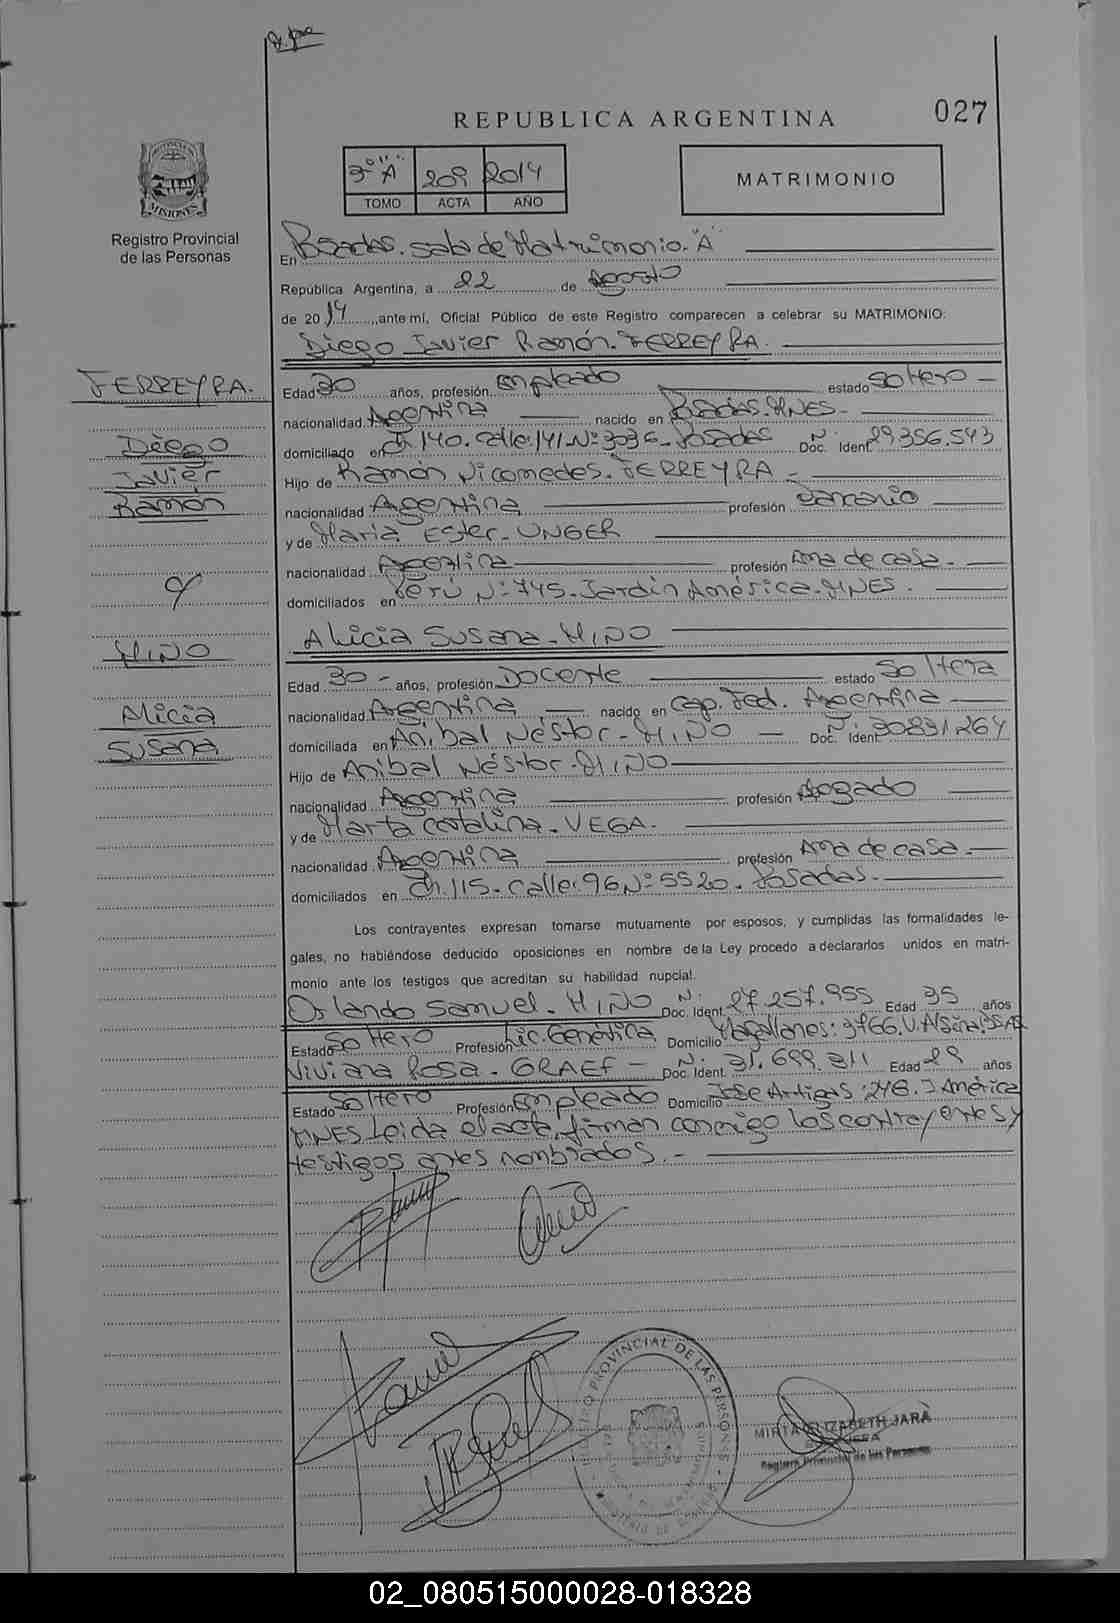 REPUBLICA ARGENTINA
027
3º "A" 209 2014
TOMO ACTA AÑO
MATRIMONIO
PROVINCIA DE
MISIONES
Registro Provincial
de las Personas
En Posadas. sala de Matrimonio. "A"
República Argentina, a 22 de Agosto
de 2014, ante mí, Oficial Público de este Registro comparecen a celebrar su MATRIMONIO:
Diego Javier Ramón. FERREYRA.
FERREYRA.
Diego
Javier
Ramón
y
MIÑO
Alicia
Susana
Edad 30 años, profesión empleado estado soltero
nacionalidad Argentina nacido en Posadas. MNES.
domiciliado en Ch. 140. calle. 141. Nº 3036. Posadas Doc. Ident. Nº 29.356.543
Hijo de Ramón Nicomedes. FERREYRA
nacionalidad Argentina profesión
y de María Ester. UNGER
nacionalidad Argentina profesión Ama de casa.
domiciliados en Perú Nº 745. Jardín América. MNES.
Alicia Susana. MIÑO
Edad 30 - años, profesión Docente estado Soltera
nacionalidad Argentina nacido en Cap. Fed. Argentina
domiciliada en Aníbal Néstor. MIÑO Doc. Ident. Nº 30831264
Hijo de Aníbal Néstor. MIÑO
nacionalidad Argentina profesión Abogado
y de Marta Catalina. VEGA.
nacionalidad Argentina profesión Ama de casa.
domiciliados en Ch. 115. calle. 96 Nº 5520. Posadas.
Los contrayentes expresan tomarse mutuamente por esposos, y cumplidas las formalidades le-
gales, no habiéndose deducido oposiciones en nombre de la Ley procedo a declararlos unidos en matri-
monio ante los testigos que acreditan su habilidad nupcial.
Orlando Samuel. MIÑO Doc. Ident. Nº 27.257.955 Edad 35 años
Estado Soltero Profesión Lic. Genética Domicilio Magallanes: 3766.
Viviana Rosa. GRAEF Doc. Ident. Nº 31.699.311 Edad 29 años
Estado Soltero Profesión empleado Domicilio José Artigas: 248. J América
MNES Leída el acta, firman conmigo los contrayentes y
testigos antes nombrados.
REGISTRO PROVINCIAL DE LAS PERSONAS
MIRTA ELIZABETH JARA
Registro Provincial de las Personas
02_080515000028-018328